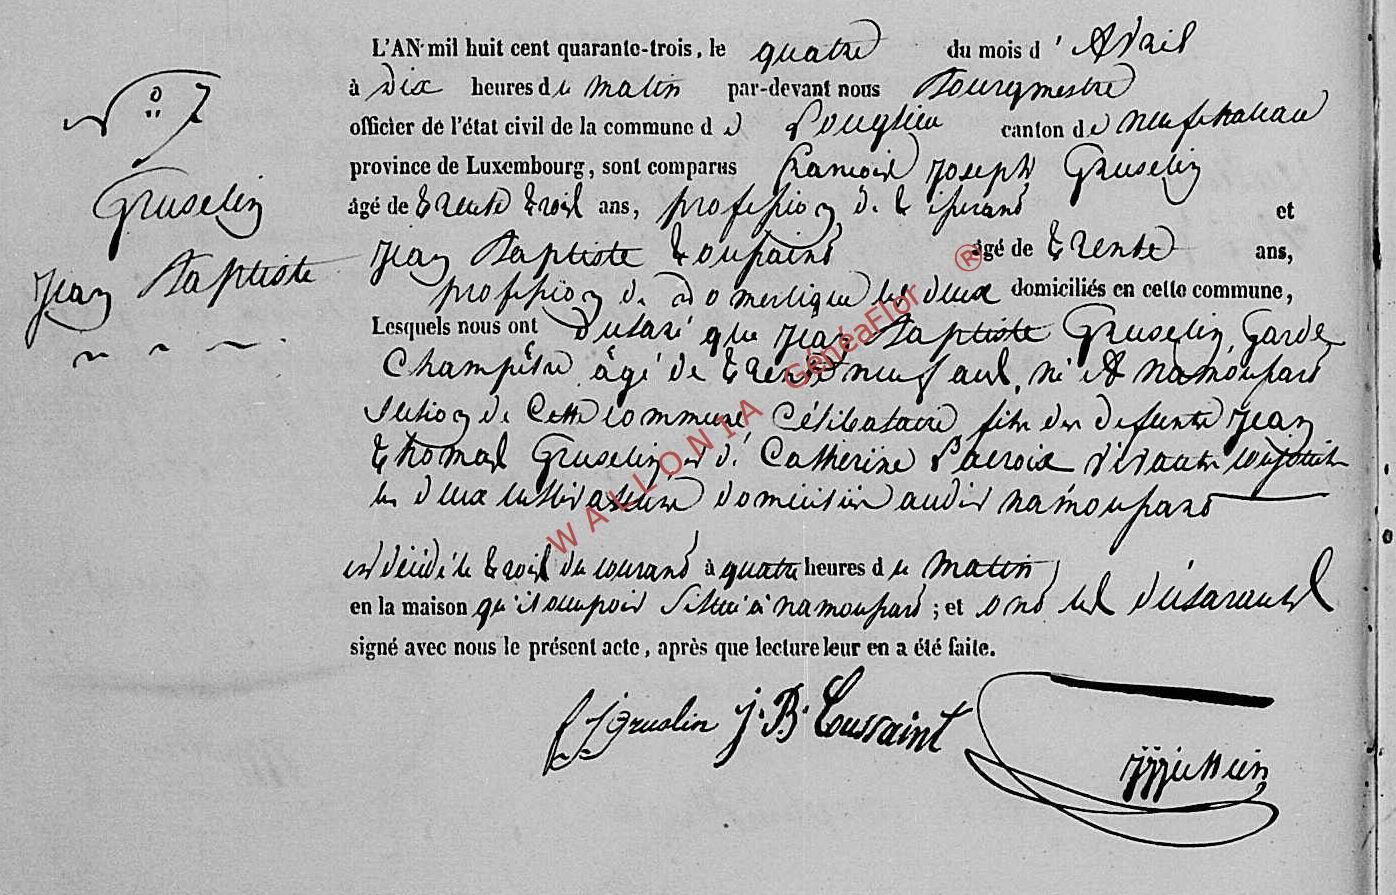 N° 7
Gruselin
Jean Baptiste
L'AN mil huit cent quarante-trois, le quatre du mois d'Avril
à dix heures du matin par-devant nous Bourgmestre
officier de l'état civil de la commune de Longlier canton de neufchateau
province de Luxembourg, sont comparus francois Joseph Gruselin
âgé de trente trois ans, profession de tisserand et
Jean Baptiste toussaint âgé de trente ans,
profession de domestique les deux domiciliés en cette commune,
Lesquels nous ont déclaré que Jean Baptiste Gruselin, Garde
Champêtre âgé de trente neuf ans, né à namoussart
section de Cette commune, Célibataire fils des defunts Jean
thomas Gruselin et de Catherine Lacroix vivants conjoints
les deux cultivateurs domiciliés audit namoussart
est décédé le trois du courant à quatre heures du matin
en la maison qu'il occupoit située à namoussart ; et ont les déclarants
signé avec nous le présent acte, après que lecture leur en a été faite.
f J Gruslin J. B. Toussaint
WALLONIA GénéaFlor ®